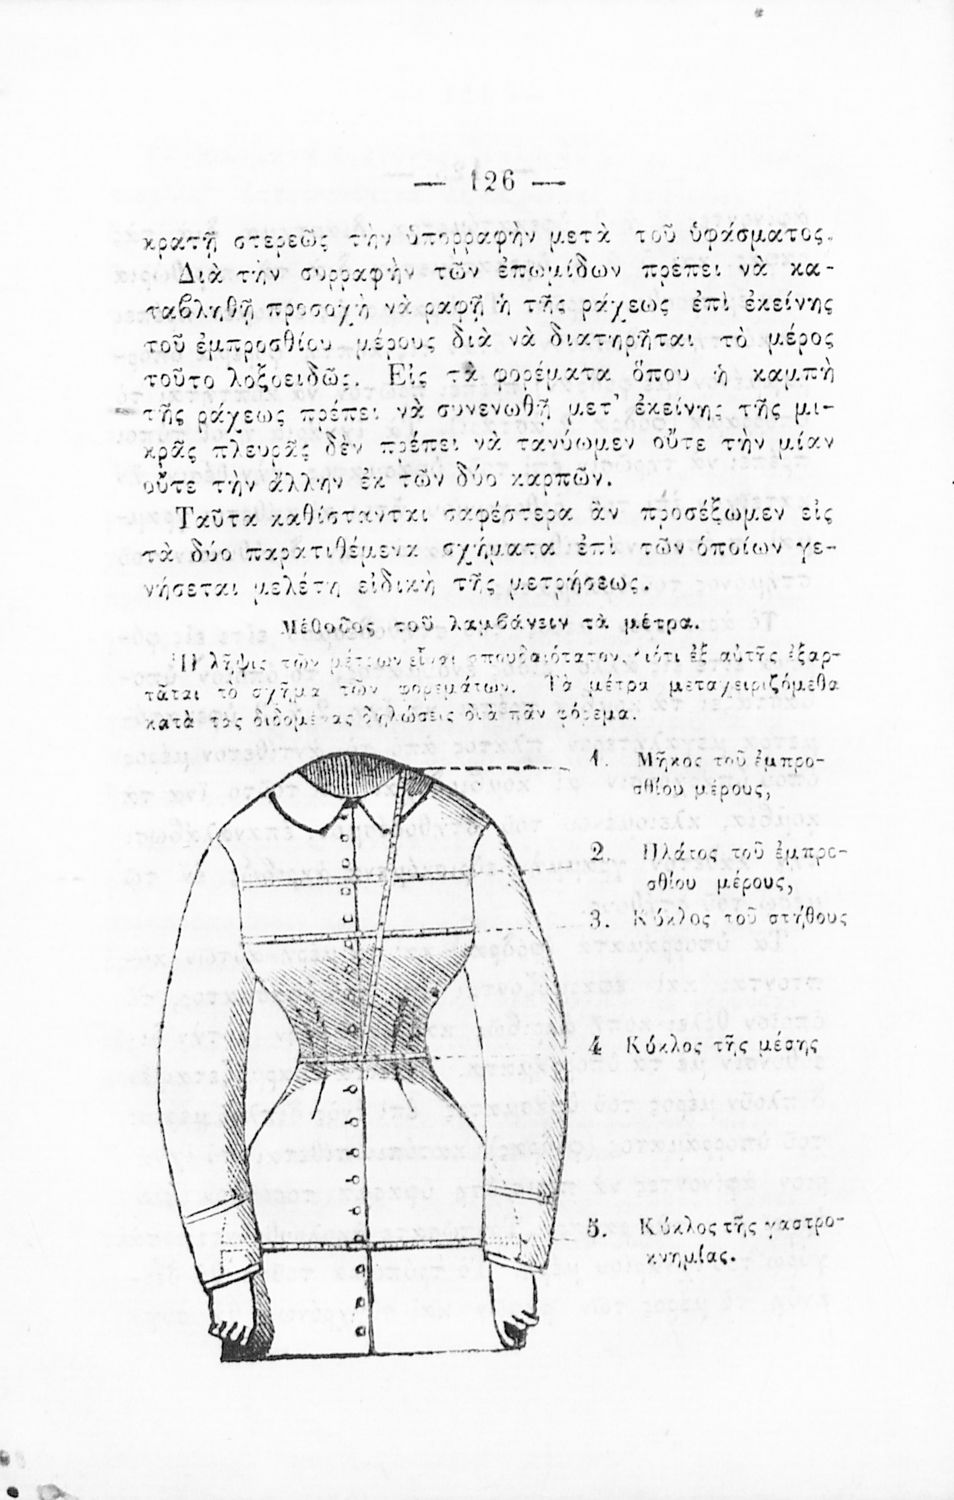 — 126 —
κρατῇ στερεῶς τὴν ὑπορραφὴν μετὰ τοῦ ὑφάσματος.
Διὰ τὴν συρραφὴν τῶν ἐπωμίδων πρέπει νὰ κα-
ταβληθῇ προσοχὴ νὰ ραφῇ ἡ τῆς ράχεως ἐπὶ ἐκείνης
τοῦ ἐμπροσθίου μέρους διὰ νὰ διατηρῆται τὸ μέρος
τοῦτο λοξοειδῶς. Εἰς τὰ φορέματα ὅπου ἡ καμπὴ
τῆς ράχεως πρέπει νὰ συνενωθῇ μετ’ ἐκείνης τῆς μι-
κρᾶς πλευρᾶς δὲν πρέπει νὰ τανύωμεν οὔτε τὴν μίαν
οὔτε τὴν ἄλλην ἐκ τῶν δύο καρπῶν.
Ταῦτα καθίστανται σαφέστερα ἂν προσέξωμεν εἰς
τὰ δύο παρατιθέμενα σχήματα ἐπὶ τῶν ὁποίων γε-
νήσεται μελέτη εἰδικὴ τῆς μετρήσεως.
Μέθοδος τοῦ λαμβάνειν τὰ μέτρα.
Ἡ λῆψις τῶν μέτρων εἶναι σπουδαιότατον, διότι ἐξ αὐτῆς ἐξαρ-
τᾶται τὸ σχῆμα τῶν φορεμάτων. Τὰ μέτρα μεταχειριζόμεθα
κατὰ τὰς διδομένας δηλώσεις διὰ πᾶν φόρεμα.
1. Μῆκος τοῦ ἐμπρο-
σθίου μέρους,
2. Πλάτος τοῦ ἐμπρο-
σθίου μέρους,
3. Κύκλος τοῦ στήθους
4 Κύκλος τῆς μέσης
5. Κύκλος τῆς γαστρο-
κνημίας.